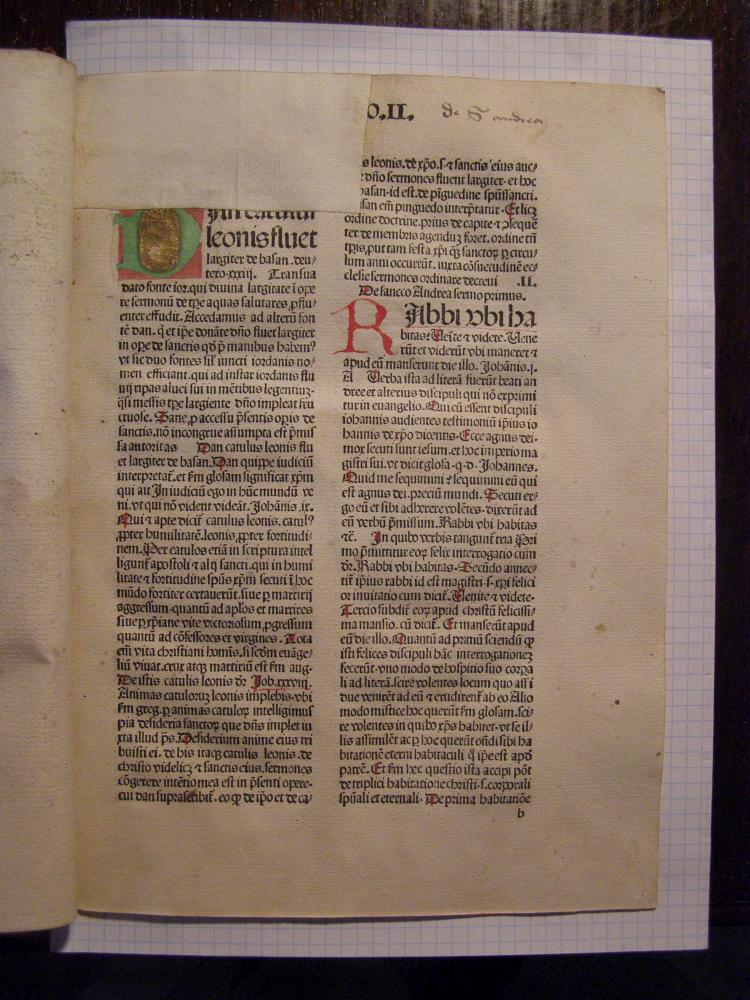 O.II. de S andrea
Dan catulus
leonis fluet
largiter de basan .deu/
tero.xxxiij. Transua
dato fonte ior.qui diuina largitate i ope
re sermonū de tꝑe aquas salutares ꝓflu/
enter effudit. Accedamus ad alterū fon
tē dan. q̄ et ip̄e donāte dn̄o fluet largiter
in oꝑe de sanctis qd̓ p̄ manibus habem⁹
vt sic duo fontes sil̓ iuncti iordanis no/
men efficiant.qui ad instar iordanis flu
uij ripas aluei sui in mētibus legentiuꝫ-
q̄si messis tꝑe largiente dn̄o impleat fru
ctuose. Sane ꝓ accessu p̄sentis oꝑis de
sanctis.nō incongrue assumpta est p̄mis
sa autoritas Dan catulus leonis flu
et largiter de basan. Dan quippe iudiciū
interpretat̄. et s̄m glosam significat xp̄m
qui ait In iudiciū ego in hūc mundū ve
ni.vt qui nō vident videāt. Johānis .ix.
Qui ⁊ apte dicit̄ catulus leonis. catul⁹
ꝓpter humilitatē.leonis ꝓpter fortitudi/
nem. Per catulos etiā in scriptura intel
ligunt̄ apostoli ⁊ alij sancti.qui in humi
litate ⁊ fortitudine spūs xp̄m secuti i hoc
mūdo fortiter certauerūt.siue ꝑ martirij
aggressum.quantū ad aplos et martires
siue ꝑ xp̄iane vite victoriosum ꝓgressum
quantū ad cōfessores et virgines. Tota
em̄ vita christiani homīs.si scd̓m euāge/
liū viuat.crux atqꝫ martiriū est s̄m aug-
De istis catulis leonis d̓r Job.xxxviij.
Animas catuloruꝫ leonis implebis.vbi
s̄m greg.ꝑ animas catuloꝝ intelligimus
pia desideria sanctoꝝ que dn̄s implet iu
xta illud p̄s. Desiderium anime eius tri
buisti ei. de his itaqꝫ catulis leonis .de
christo videlicꝫ ⁊ sanctis eius.sermones
cōgerere intētio mea est in p̄senti opere-
cui dan suprascribit̄. eo ꝙ de ip̄o et de ca/
s leonis.de xp̄o.s. ⁊ sanctis eius auc/
dn̄o sermones fluent largiter- et hoc
basan-id est.de piguedine spūssancti.
san em̄ pinguedo interp̄tatur. Et licꝫ
ordine doctrine.prius de capite ⁊ ↄseque
ter de membris agenduꝫ foret. ordine tn̄
tꝑis,put tam festa xp̄i qꝫ sanctoꝝ ꝑ circu/
lum anni occurrūt. iuxta cōsuetudinē ec/
clesie sermones ordinare decreui .II.
De sancto Andrea sermo primus.
RAbbi vbi ha
bitas? Uenīte ⁊ videte. Uene
rūt et viderūt vbi maneret ⁊
apud eū manserunt die illo. Johānis.j.
A Uerba ista ad literā fuerūt beati an
dree et alterius discipuli qui nō exprimi
tur in euangelio. Qui cū essent discipuli
iohannis audientes testimoniū ip̄ius io
hannis de xp̄o dicentis. Ecce agnus dei-
mox secuti sunt iesum. et hoc imperio ma
gistri sui.vt dicit glosa .q.d. Johannes.
Quid me sequimini? sequimini eū qui
est agnus dei.preciū mundi. Secuti er/
go eū et sibi adherere volētes. dixerūt ad
eū verbū p̄missum. Rabbi vbi habitas
⁊c̄. In quibꝰ verbis tangunt̄ tria Pri
mo p̄mittitur eoꝝ felix interrogatio cum
d̓r. Rabbi vbi habitas. Secūdo annec/
tit̄ ip̄ius rabbi id est magistri.s.xp̄i felici
or inuitatio cum dicit̄. Uenite ⁊ videte-
Tercio subdit̄ eoꝝ apud christū felicissi/
ma mansio. cū dicit̄. Et manserūt apud
eū die illo. Quantū ad primū sciendū ꝙ
isti felices discipuli hāc interrogationeꝫ
fecerūt. vno modo de hospitio suo corpa
li ad literā.scire volentes locum quo assi
due venirēt ad eū ⁊ erudirent̄ ab eo Alio
modo mistice hoc querūt s̄m glosam.sci/
re volentes in quibꝰ xp̄s habitet. vt se il/
lis assimilēt ac ꝑ hoc querūt ondi sibi ha
bitationē eterni habitaculi q̄ ip̄e est apd̓
patrē. Et s̄m hec questio ista accipi pōt
de triplici habitatione christi.s.corporali
spūali et eternali. De prima habitatiōe
b